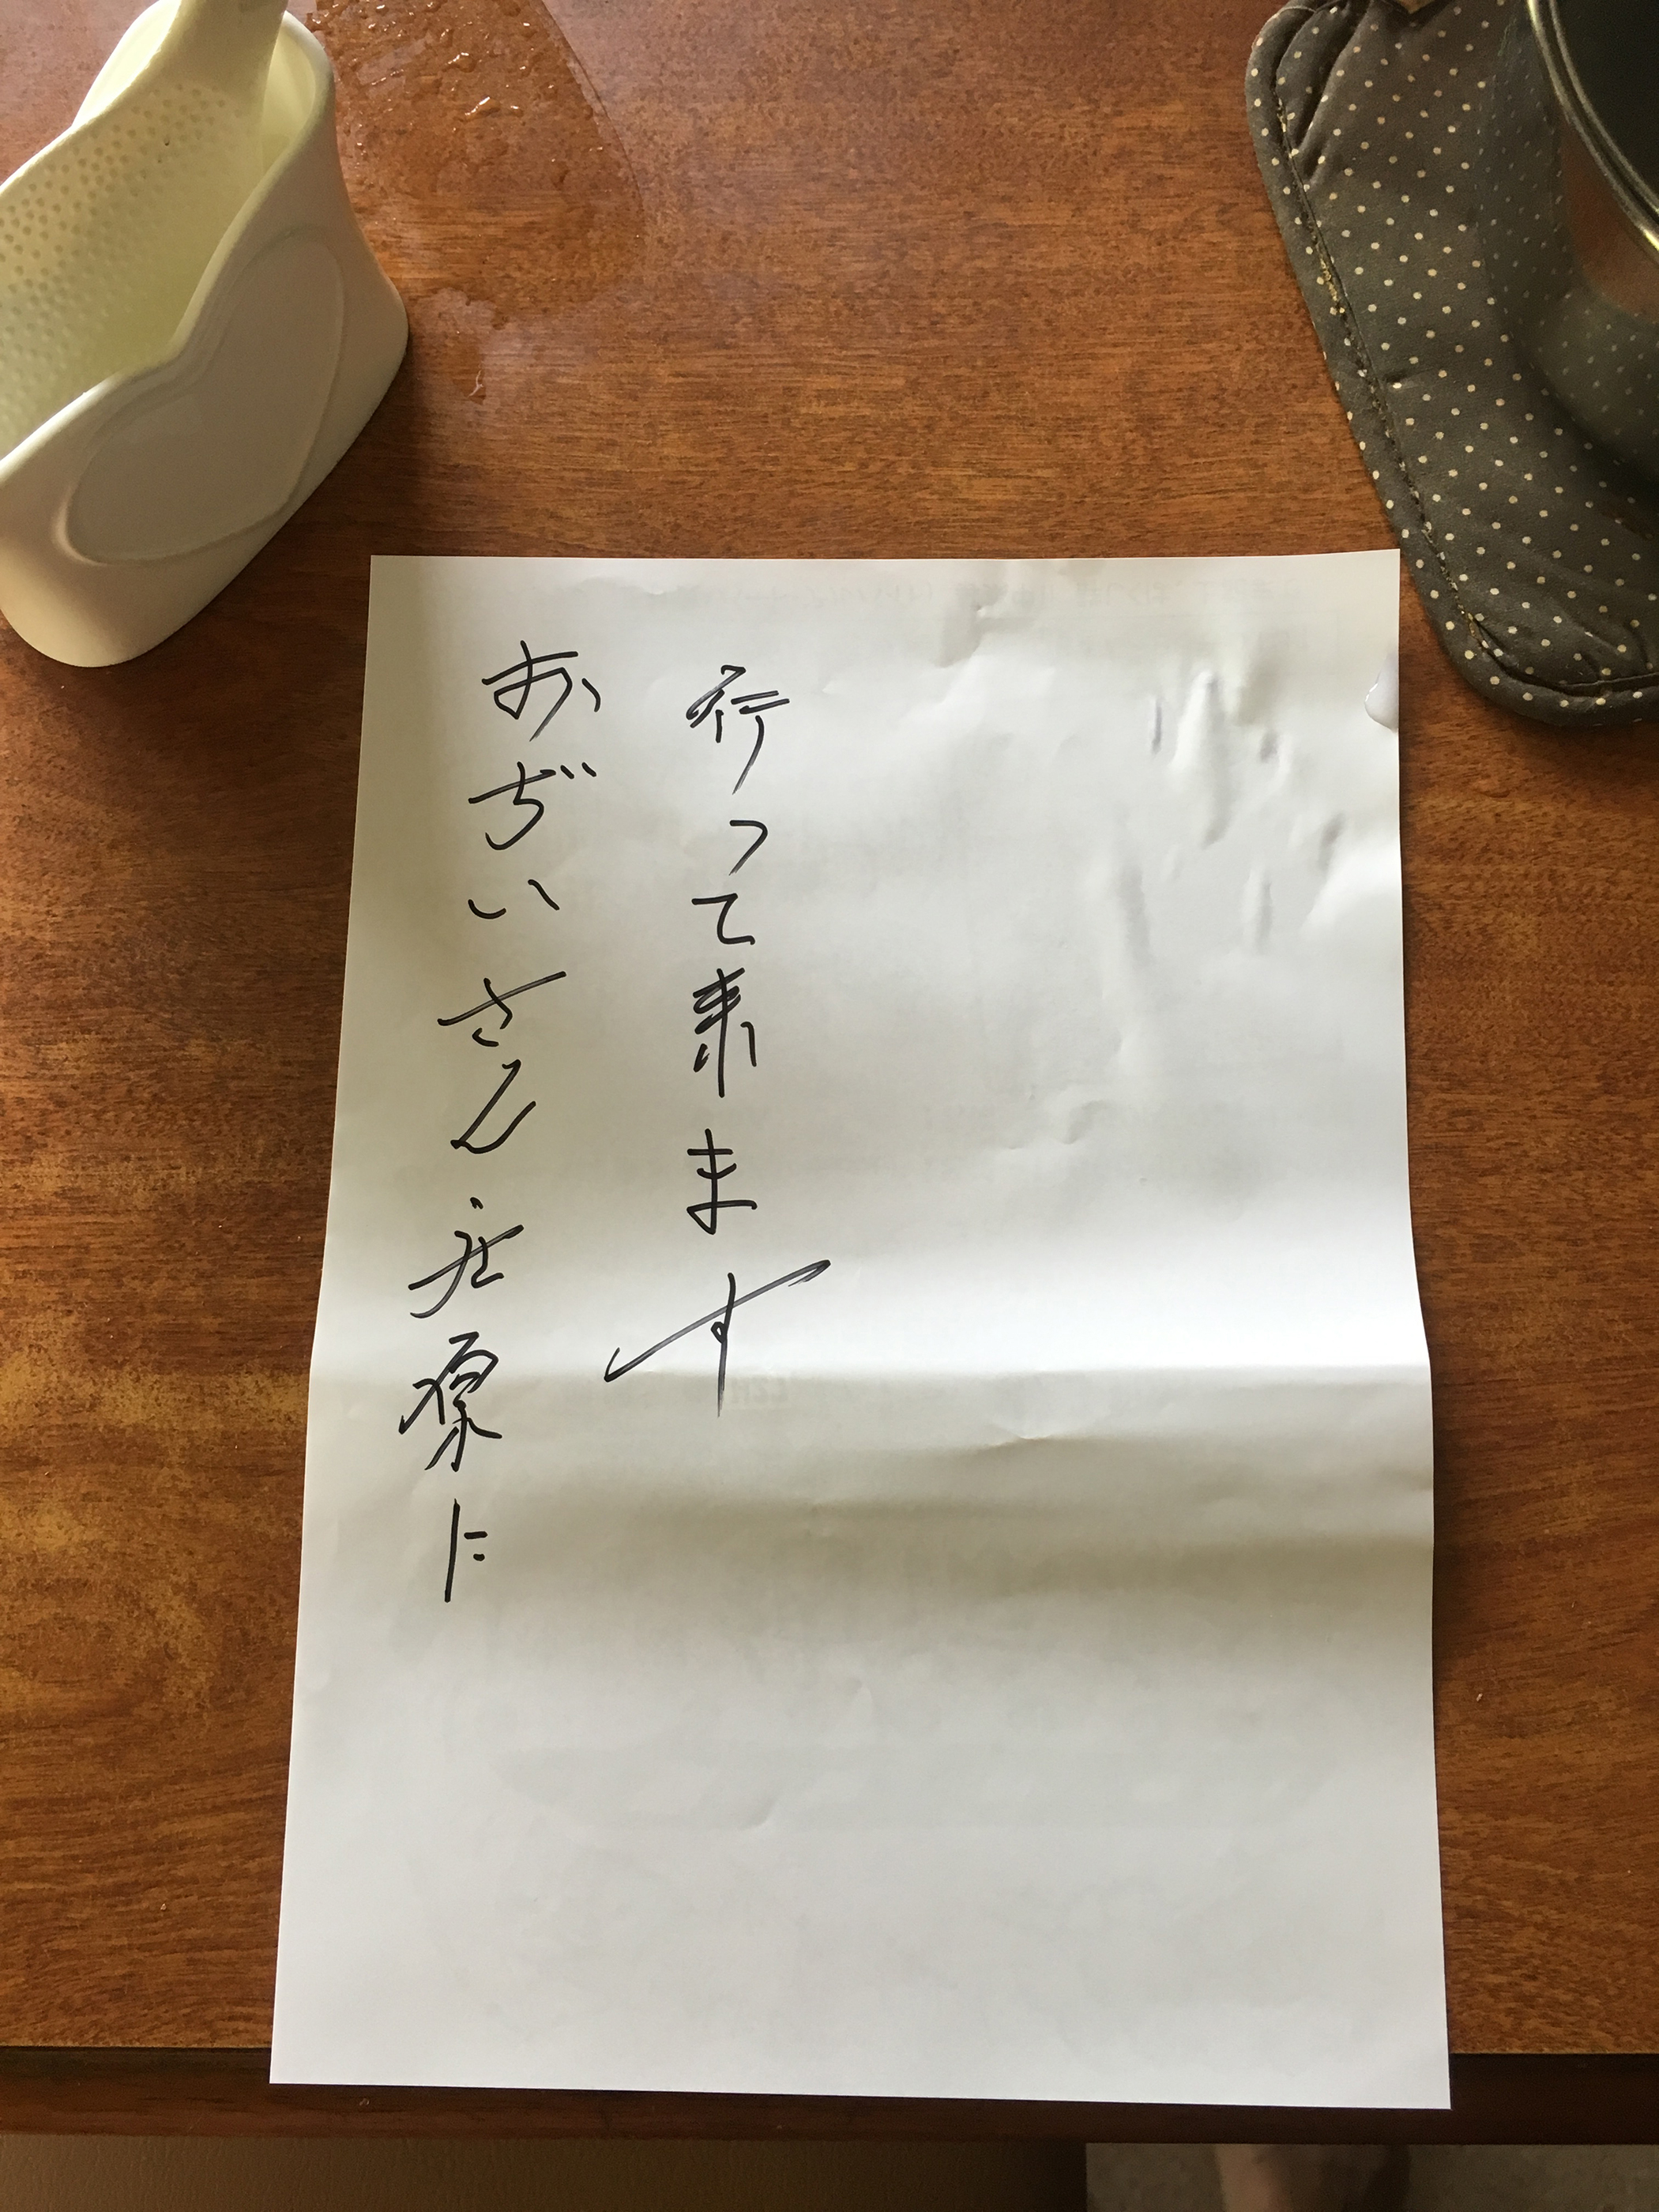 おぢいさん庄原に
行って来ます